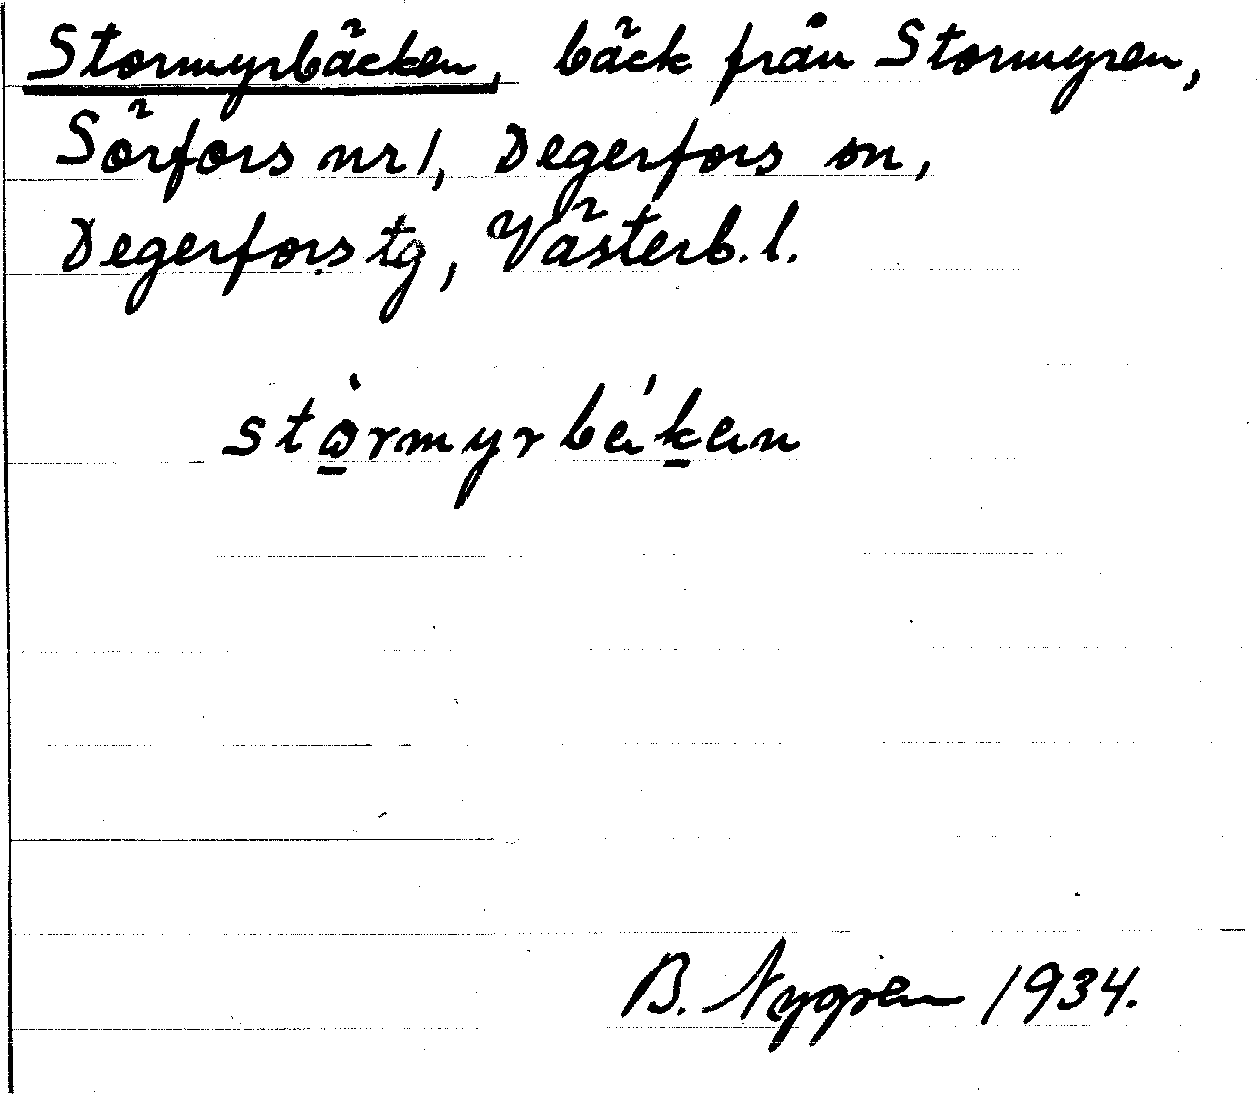 Stormyrbäcken, bäck från Stormyren,
Sörfors nr 1, Degerfors sn,
Degerfors tg, Västerb. l.
stò̱rmyrbék̠en
B. Nygren 1934.